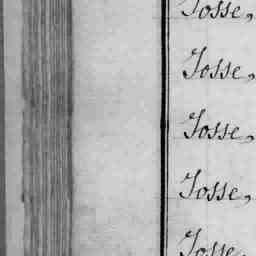 Josse,
Josse,
Josse,
Josse,
Josse,